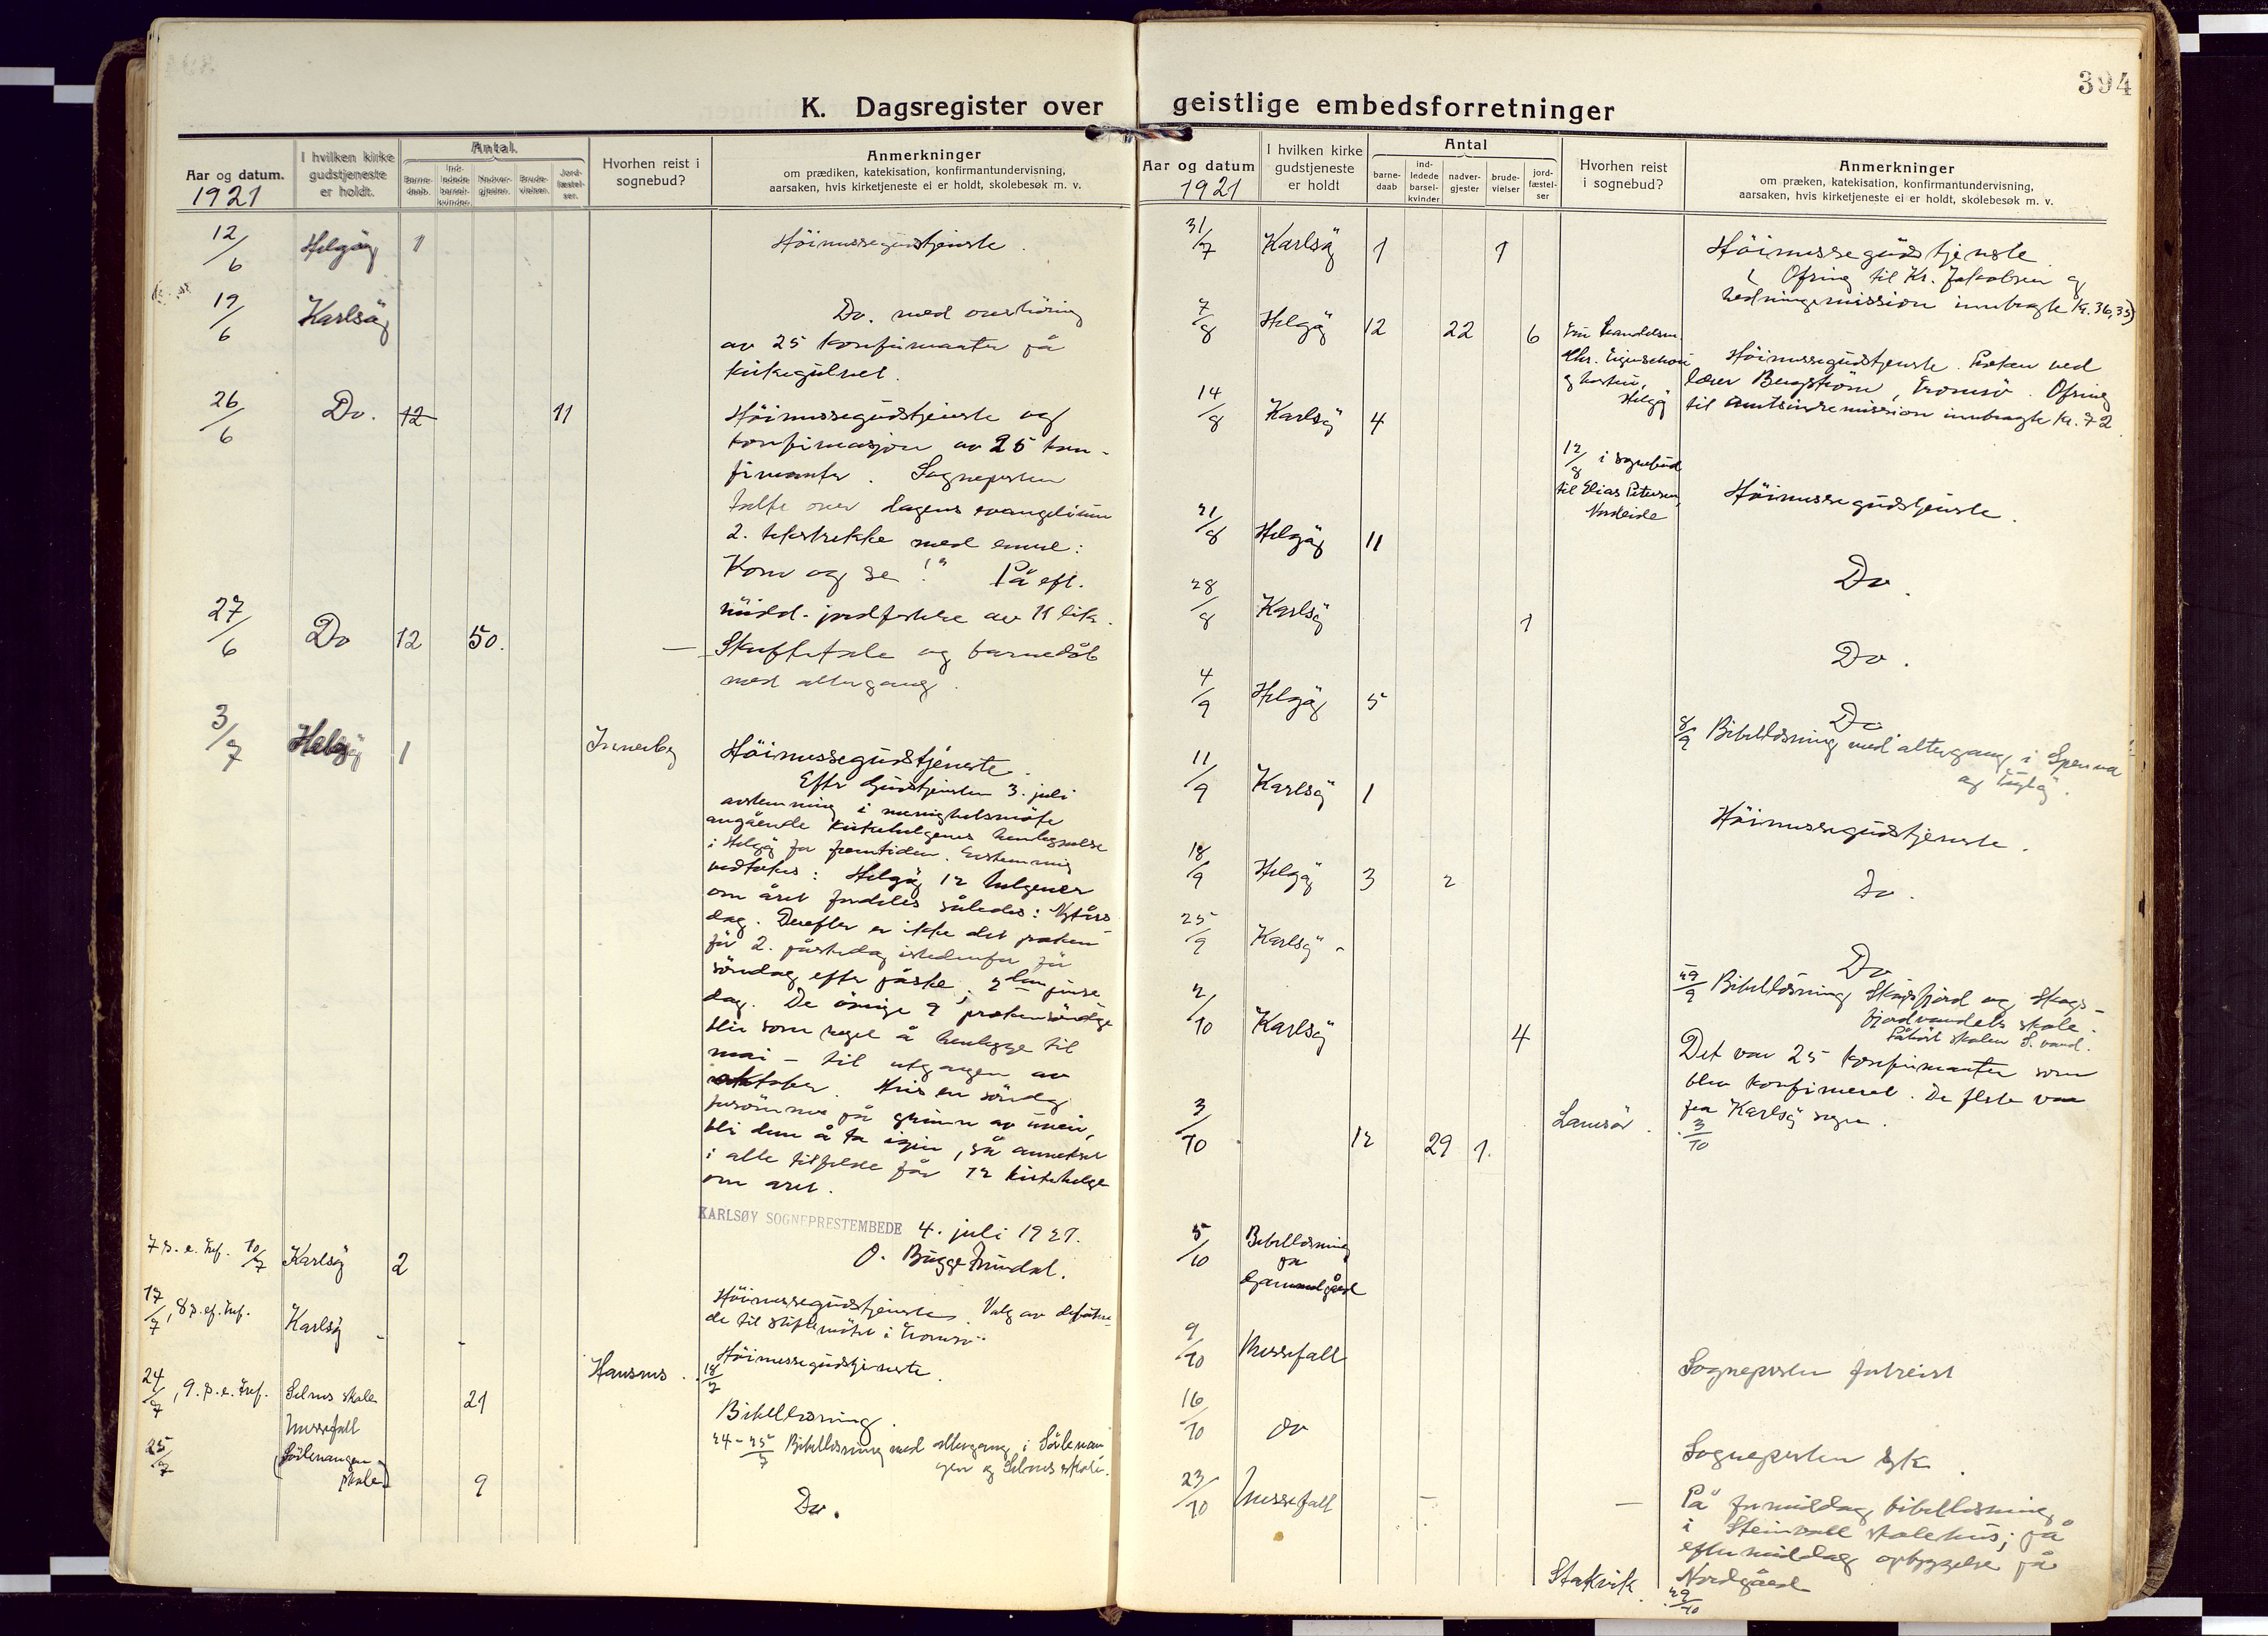 394
K. Dagsregister over geistlige embedsforretninger
Aar og datum.
1921
I hvilken kirke
gudstjeneste
er holdt.
Antal.
Barne-
daab.
Ind-
ledede
barsel-
kvinder.
Nadver-
gjester.
Brude-
vielser.
Jord-
fæstel-
ser.
Hvorhen reist i
sognebud?
Anmerkninger
om prædiken, katekisation, konfirmantundervisning,
aarsaken, hvis kirketjeneste ei er holdt, skolebesøk m. v.
12/6 Helgöy 1 Höimessegudstjeneste.
19/6 Karlsöy Do. med overhöring
av 25 konfirmanter på
kirkegulvet.
26/6 Do. 12 11 Höimessegudstjeneste og
konfirmasjon av 25 kon-
firmanter. Sogneprsten
talte over dagens evangelium
2. tekstrekke med emne:
Kom og se!" På eft.
midd. jordfestelse av 11 lik.
27/6 Do 12 50. — Skriftetale og barnedåb
med altergang.
3/7 Helgöy 1 Höimessegudstjeneste.
Efter Gudstjensten 3. juli
avstemning i menighetsmöte
angående kirkehelgenes henleggelse
i Helgöy for fremtiden. Enstemmig
vedtokes: Helgöy 12 helgener
om året fordeles således: Nytårs
dag. Derefter er ikke det preken
för 2. påskedag istedenfor för
söndag efter påske; 2den pinse
dag. De övrige 9 prekensöndge
blir som regel å henlegge til
mai – til utgangen av
oktober. Hvis en söndag
forsömmes på grunn av uveir,
bli den å ta igjen, så annekset
i alle tilfelde får 12 kirkehelge
om året.
KARLSØY SOGNEPRESTEMBEDE 4. juli 1921.
O. Bugge
7 s. e. tref. 10/7 Karlsöy 2 Höimessegudstjeneste. Valg av
de til stiftsmötet i Tromsö
17/7, 8 s. ef. tref. Karlsöy - - Höimessegudstjeneste.
Hansnes. 18/7
Bibellesning.
24/7, 9. s. e. tref. skole 21 24–25/7 Bibellesning med altergang i
Messefall
og skole.
25/7 skole 9 Do.
Aar og datum
1921
I hvilken kirke
gudstjeneste
er holdt
Antal
barne-
daab
ind-
ledede
barsel-
kvinder
nadver-
gjester
brude-
vielser
jord-
fæstel-
ser
Hvorhen reist
i sognebud?
Anmerkninger
om præken, katekisation, konfirmantundervisning,
aarsaken, hvis kirketjeneste ei er holdt, skolebesøk m. v.
31/7 Karlsöy 1 1 Höimessegudstjeneste.
Ofring til Kr. Jakobsen og
hedningemission innbragte Kr. 36,35)
7/8 Helgöy 12 22 6 Höimessegudstjeneste. Preken ved
og hustru, Helgöy
lærer Bergström, Tromsö. Ofring
til amtsindremission innbragte Kr. 72.
14/8 Karlsöy 4 12/8 i sognebud
til Elias Petersen,
Höimessegudstjeneste.
21/8 Helgöy 11 Do.
28/8 Karlsöy 1 Do.
4/9 Helgöy 5 Do
8/9 Bibellesning med altergang i Spenna
og
11/9 Karlsöy 1 Höimessegudstjeneste.
18/9 Helgöy 3 2 Do.
25/9 Karlsöy - Do
29/9 Bibellesning Skogsfjord og Skogs-
fjordvandets skole.
Påhört skolen S. vand.
2/10 Karlsöy 4 Det var 25 konfirmanter som
blev konfirmeret. De fleste var
fra Karlsöy sogn.
3/10 12 29 1. 3/10
5/10 Bibellesning
på
Gammelgård
9/10 Messefall Sogneprsten fortreist
16/10 do Sogneprsten syk.
23/10 Messefall — — På formiddag bibellesning
i Steinvoll skolehus; på
eftermiddag opbyggelse på
Nordgård
Stakvik. 29/10